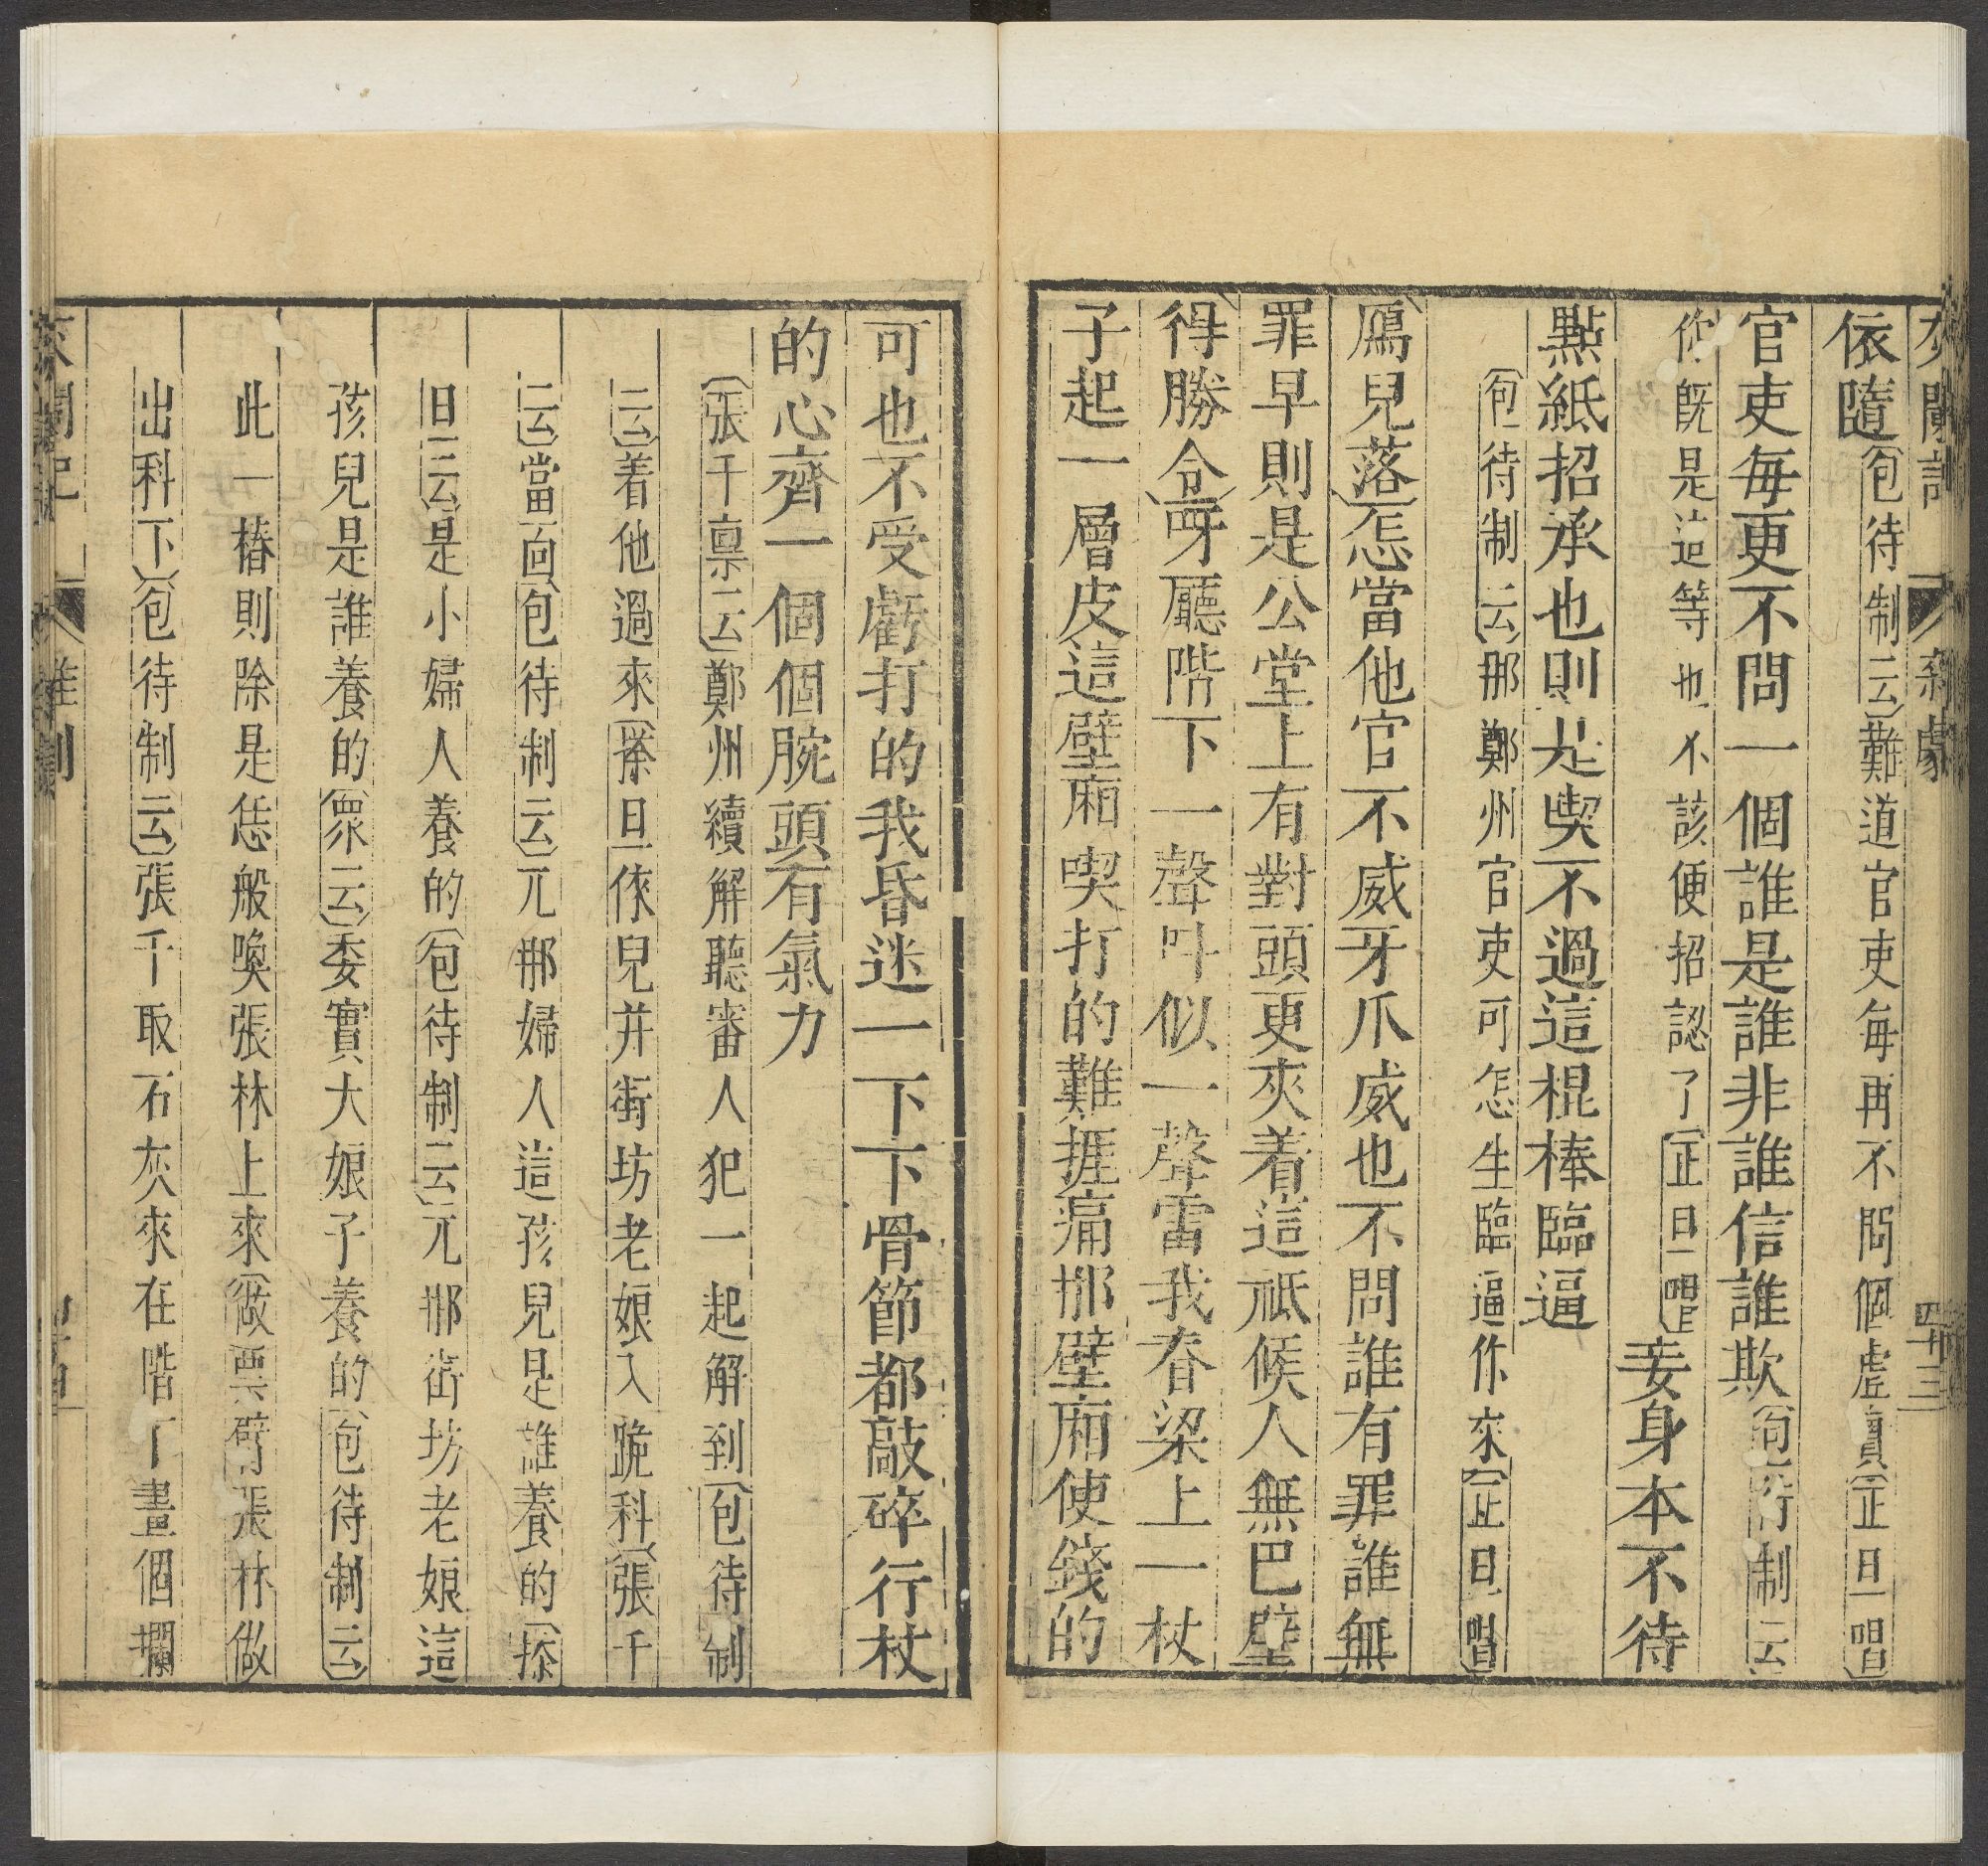 灰闌記 雜劇 四十三
依隨(包待制云)難道官吏每再不問個虛實(正旦唱)
官吏每更不問一個誰是誰非誰信誰欺(包待制云)
你旣是這等也不該便招認了(正旦唱)妾身本不待
點紙招承也則是喫不過這棍棒臨逼
(包待制云)那鄭州官吏可怎生臨逼你來(正旦唱)
鴈兒落)怎當他官不威牙爪威也不問誰有罪誰無
罪早則是公堂上有對頭更夾着這祗候人無巴壁
得勝令)呀廳階下一聲叫似一聲雷我脊梁上一杖
子起一層皮這壁廂喫打的難捱痛那壁廂使錢的
可也不受虧打的我昏迷一下下骨節都敲碎行杖
的心齊一個個腕頭有氣力
(張千禀云)鄭州續解聽審人犯一起解到(包待制
云)着他過來(搽旦倈兒幷街坊老娘入跪科)(張千
云)當面(包待制云)兀那婦人這孩兒是誰養的(搽
旦云)是小婦人養的(包待制云)兀那街坊老娘這
孩兒是誰養的(衆云)委實大娘子養的(包待制云)
此一樁則除是恁般喚張林上來(做票臂張林做
出科下)(包待制云)張千取石灰來在階下畫個攔
灰闌記 雜劇